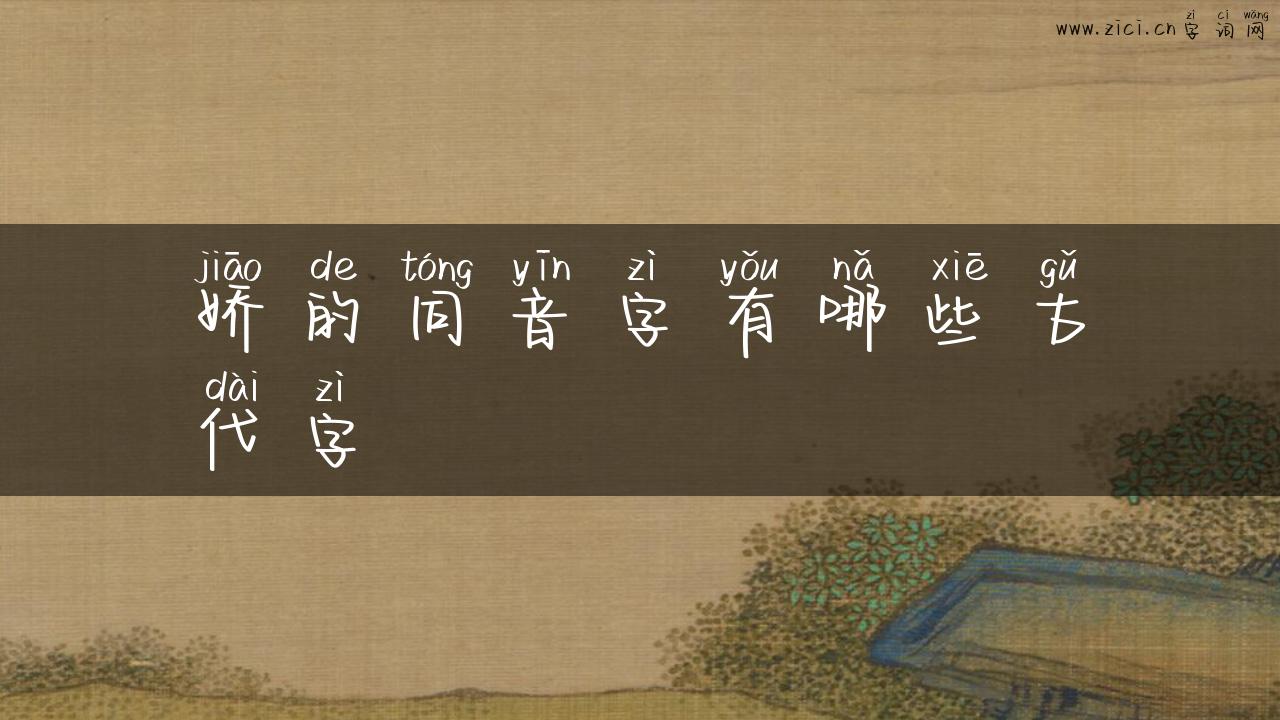 zì cí wǎng
www.zici.cn 字词网
jiāo de tóng yīn zì yǒu nǎ xiē gǔ
娇的同音字有哪些古
dài zì
代字